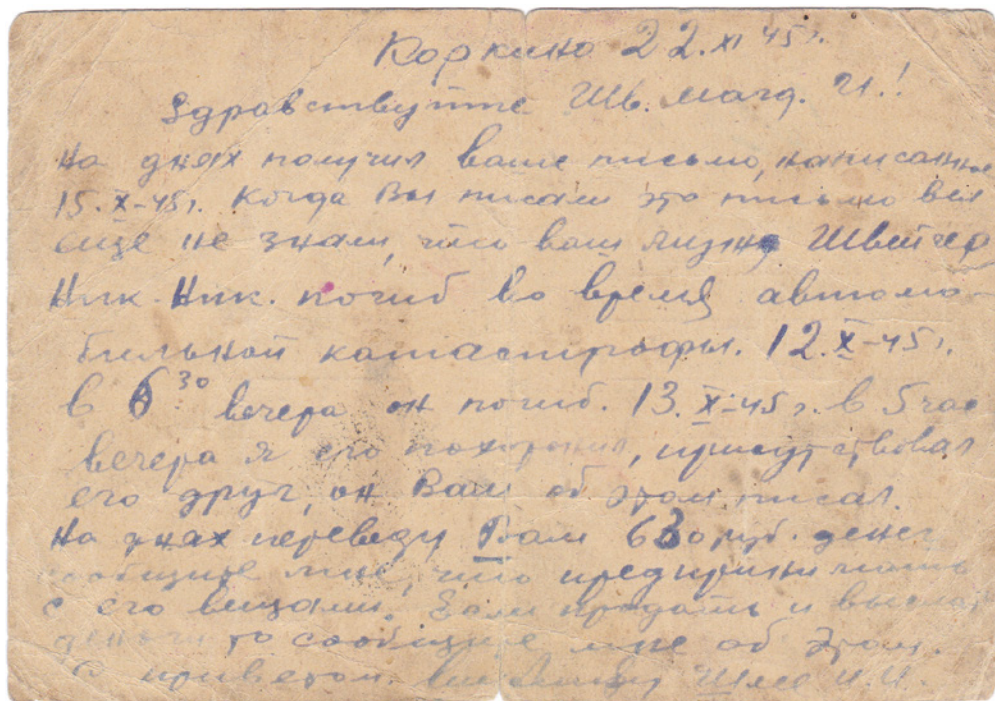 Коркино 22.XI 45г.
Здравствуйте Шв. Магд. И.!
На днях получил ваше письмо, написанное
15.X-45г. Когда Вы писали это письмо вы
еще не знали, что ваш Швейцер
Ник. Ник. погиб во время автомо-
бильной катастрофы. 12.X-45г.
в 6 30 вечера он погиб. 13.X-45г. в 5 час
вечера я его похоронил, присутствовал
его друг, он Вам об этом писал.
На днях переведу Вам 630 руб. денег
сообщите мне, что предпринимать
с его вещами. Если продать и выслать
деньги то сообщите мне об этом.
С приветом. И.И.